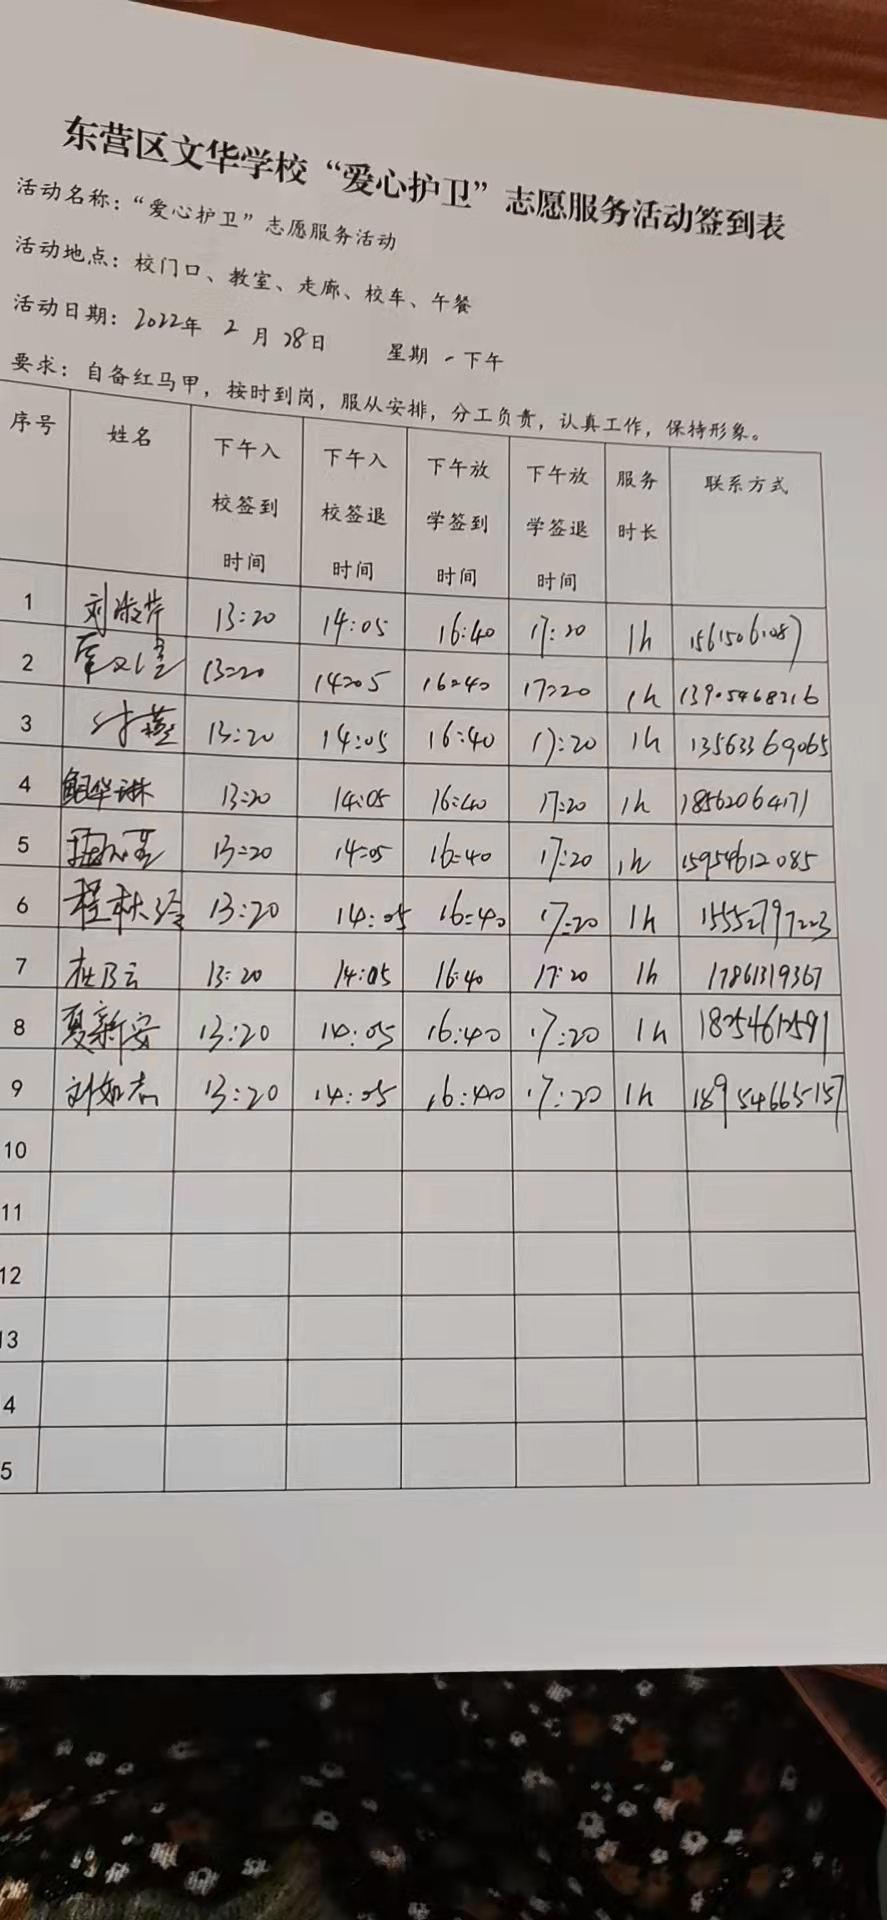 东营区文华学校“爱心护卫”志愿服务活动签到表
活动名称：“爱心护卫”志愿服务活动
活动地点：校门口、教室、走廊、校车、午餐
活动日期：2022年 2 月 28日 星期一下午
要求：自备红马甲，按时到岗，服从安排，分工负责，认真工作，保持形象。
序号 姓名 下午入校签到时间 下午入校签退时间 下午放学签到时间 下午放学签退时间 服务时长 联系方式
1 刘淑芹 13:20 14:05 16:40 17:20 1h 15615061087
2 13:20 14:05 16:40 17:20 1h 13905468216
3 13:20 14:05 16:40 17:20 1h 13563369065
4 13:20 14:05 16:40 17:20 1h 18562064171
5 13:20 14:05 16:40 17:20 1h 15954612085
6 程秋玲 13:20 14:05 16:40 17:20 1h 15552797223
7 杜乃云 13:20 14:05 16:40 17:20 1h 17861319367
8 夏新安 13:20 14:05 16:40 17:20 1h 18254612591
9 刘如志 13:20 14:05 16:40 17:20 1h 18954665157
10
11
12
13
4
5